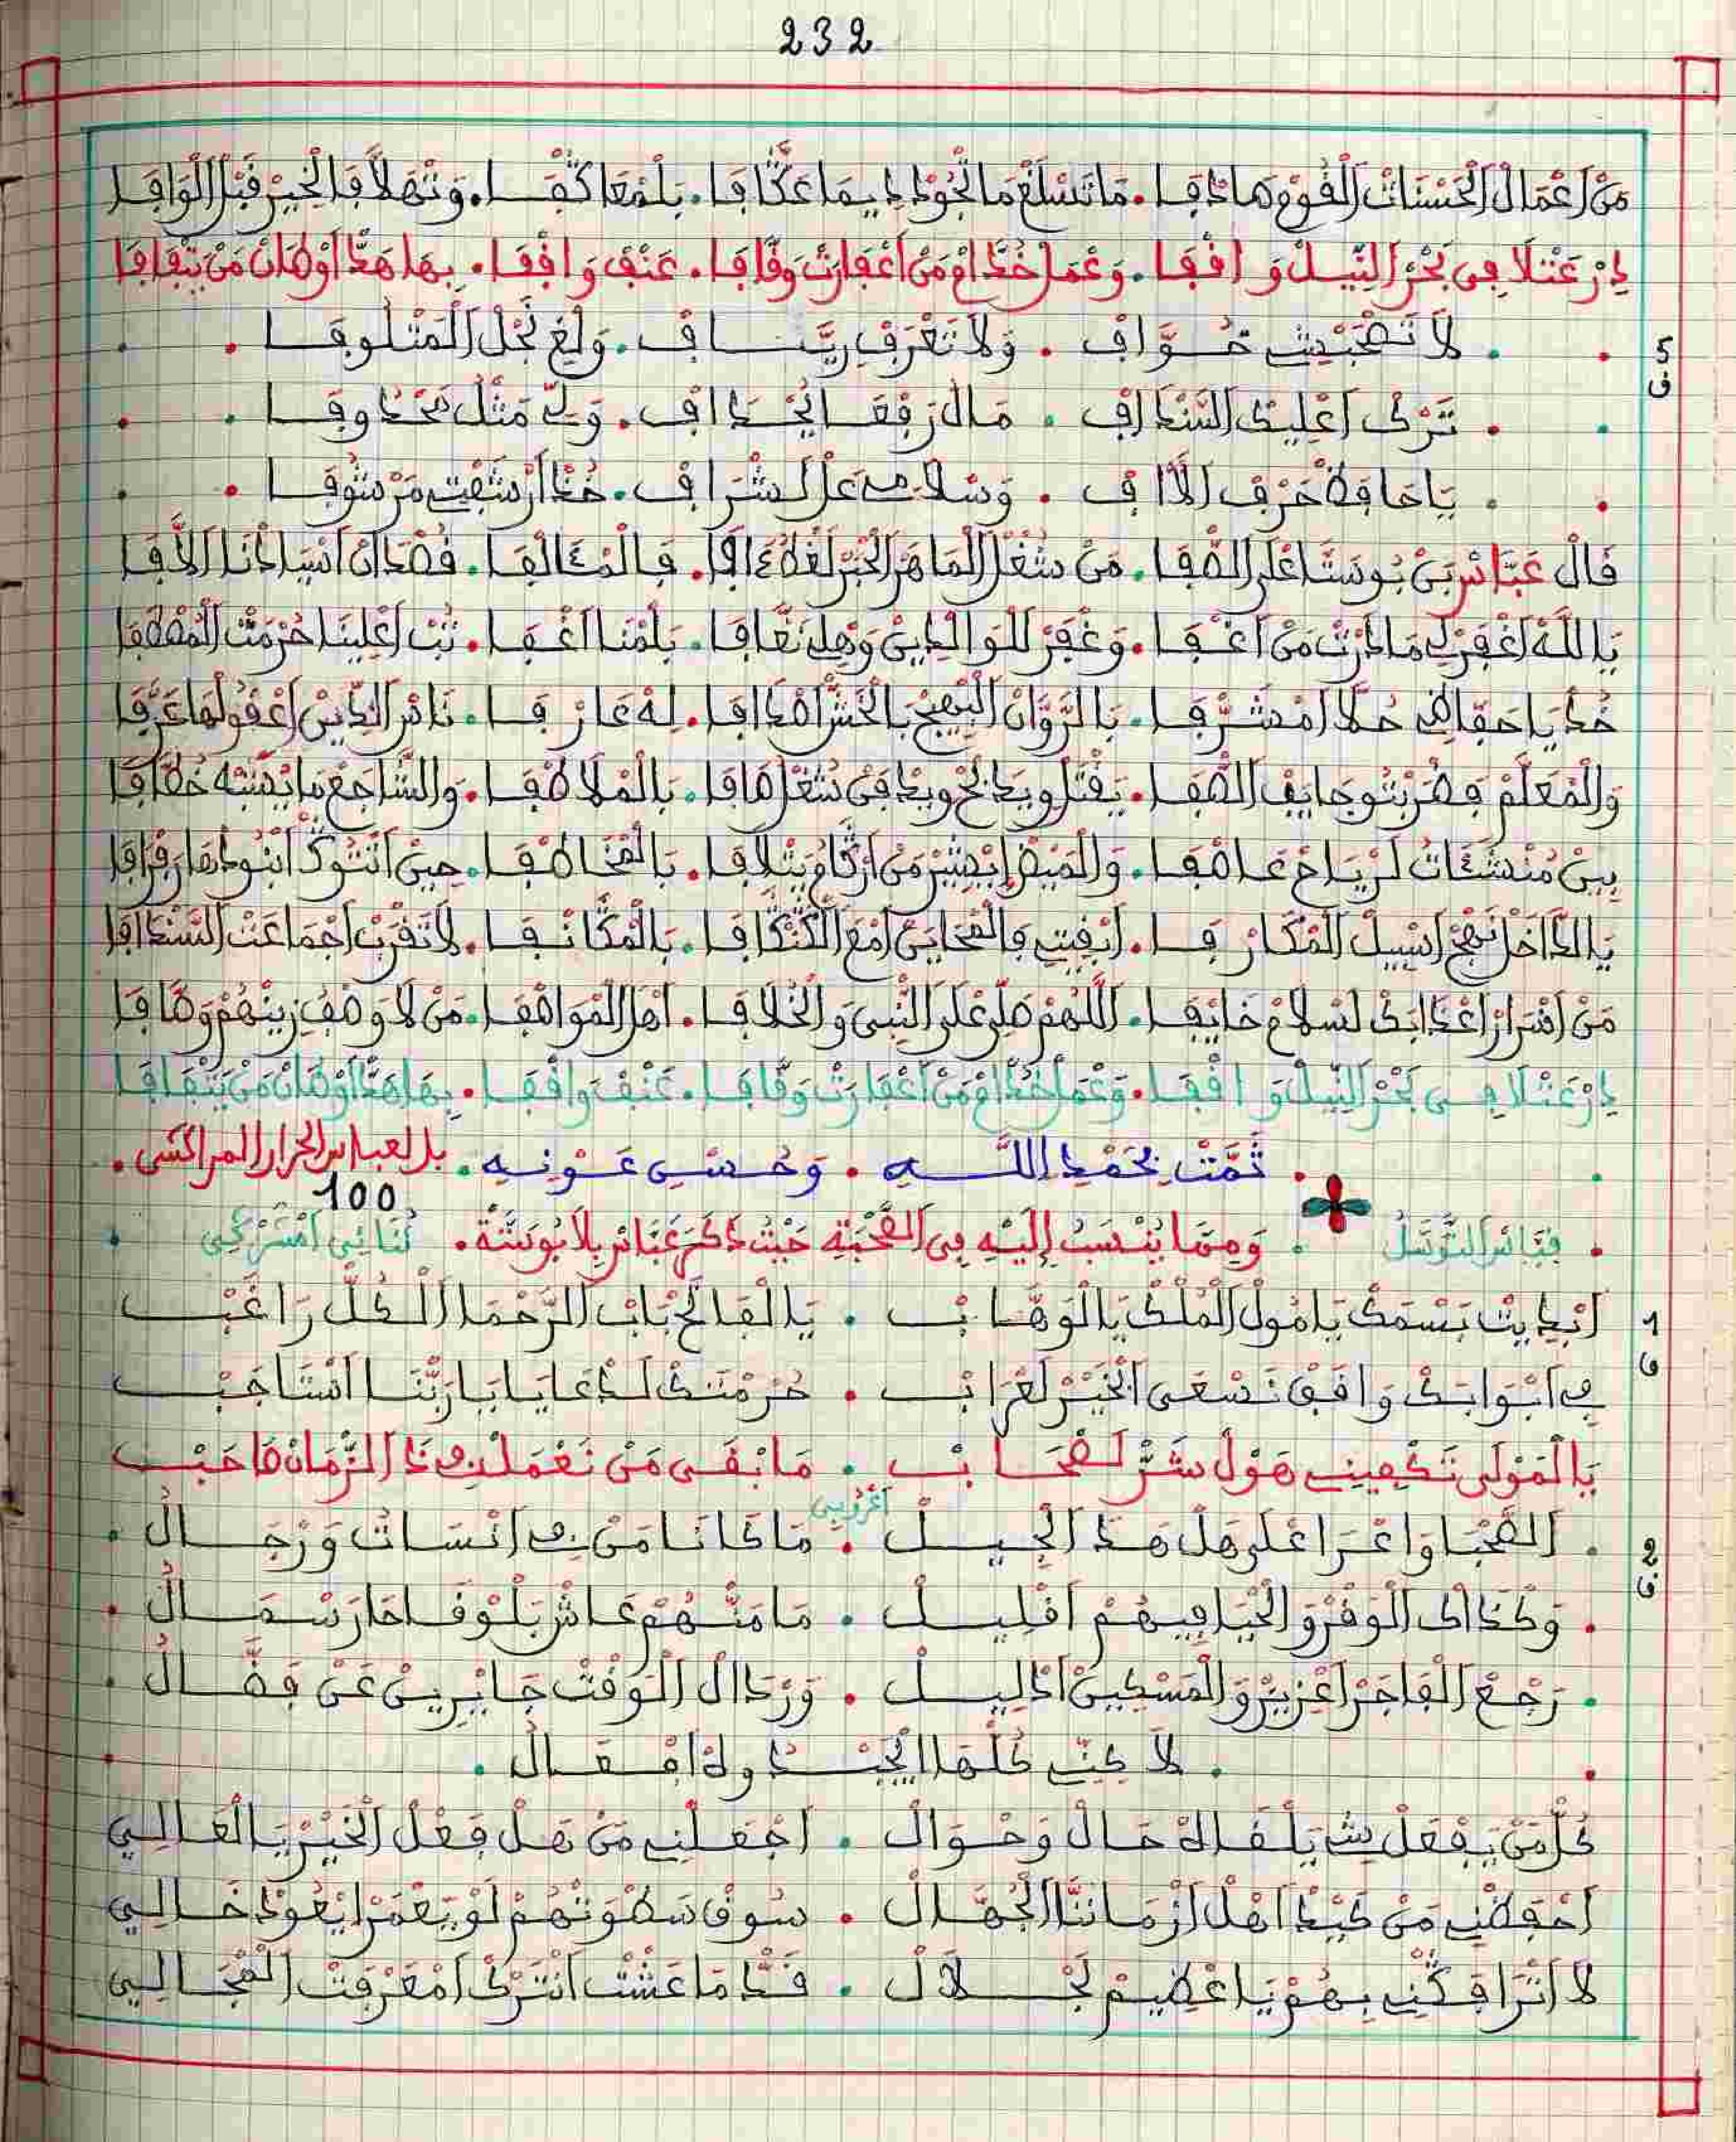 232
مَنْ اَعْمَالْ الْحَسْنَاتْ الْقُومْ هَادْفَا . مَا تَسْلَغْ مَا تْجُوْدْ دِيمَا عَكَّافَا . بَلْمْعَاكْفَا . وَتْهَلَّا فَالْخِيرْ قَبْلْ الْوَافَا
دِرْ عَتْلَا فِي بَحْرْ النِّيلْ وَافْفَا . وَعْمَلْ خُدَّامْ مَنْ اَعْفَارَتْ وَقَّافَا . عَنْفْ وَافْفَا . بِهَا هَدَّا اَوْطَانْ مَنْ يَتْفَافَا
5
ف
لَا تَصْحَبْشِ خُوَّافْ . وَلَا تَعْرَفْ رِيَّسَافْ . وَلْغِ نَجْلْ الْمَتْلُوفَا
تَرْكْ اَعْلِيكْ السَّنْدَافْ . مَالْ رَفْقَا يُجْدَافْ . وَلِّ مَثْلْ مَحْدُوفَا
يَا حَافَظْ حَرْفْ الَّافْ . وَسْلَامِ عَلْ لَشْرَافْ . خُدْ اَرْشَفْتِ مَرْشُوفَا
قَالْ عَبَّاسْ بَنْ بُوسْتَّا عْلَى الصّْفَا . مَنْ شُغْلْ الْمَاهَرْ الْحَبْرْ لَغْطَافَا . فَالْمْئَالْفَا . قُصْدَانْ اَسْيَادْنَا الَّافَا
يَا اللَّهْ اَغْفَرْ لِ مَا دَرْتْ مَنْ اَعْفَا . وَغْفَرْ لَلْوَالْدِينْ وَهْلْ نَعَّافَا . يَلْمْنَا اَعْفَا . تُبْ اَعْلِينَا حُرْمَتْ الْمُصْطَفَا
خُدْ يَا حَفَّاظِ حُلَّا اَمْشَرّْفَا . بَالرَّوَّانْ الْبْهِيجْ بَالْخَشّْ اَهْدَافَا . لِهْ عَارْفَا . نَاسْ الدِّينْ اَعْقُولْهَا عَرَّفَا
وَالْمْعَلَّمْ فَضْرَبْتُو جَايَفْ الصّْفَا . يَقْتَلْ وِيدَبْحْ وِيدْفَنْ شُغْلْ هَافَا . بَالْمْلَاطْفَا . وَالشَّاجَعْ مَا يْصَنْتِهْ خُطَّافَا
بِينْ مُنْشَئَاتْ لَرْيَاحْ عَاصْفَا . وَالْمَيْضْ اِبْصَيْرْ مَنْ اَرْكَامْ يَتْلَافَا . بَالْمْخَاطْفَا . حِينْ اَتْتُوكْ اَبْنُودْهَا رَفْرَافَا
يَا الدَّاخَلْ نَهْجْ اَسْبِيلْ الْمْكَارْفَا . اَبْقِيتِ فَالْمْحَايَنْ اَمْعَ الْكَتْكَافَا . بَالْمْكَانْفَا . لَا تَقْرَبْ اَجْمَاعَتْ السَّنْدَافَا
مَنْ اَسْرَارْ اَعْدَابَكْ لَسْلَامْ خَايْفَا . اللَّهُمْ صَلِّ عْلَى النّْبِي وَالْخْلَافَا . اَهْلْ الْمْوَاصْفَا . مَنْ لَا وَصْفْ زِينْهُمْ وَصَّافَا
دِرْ عَتْلَا فِي بَحْرْ النِّيلْ وَافْفَا . وَعْمَلْ خُدَّامْ مَنْ اَعْفَارَتْ وَقَّافَا . عَنْفْ وَافْفَا . بِهَا هَدَّا اَوْطَانْ مَنْ يَتْفَافَا
تَمَّتْ بِحَمْدِ اللَّهِ . وَحُسْنِ عَوْنِهِ . بلعباس الحرار المراكشي .
100
قِيَاسْ التّْوَسُّلْ . وَمِمَّا يُنْسَبُ إِلَيْهِ فِي الصُّحْبَةِ حَيْثُ ذَكَرَ عَبَّاسْ بِلَا بُوسْتَّة . ثُنَائِي اَمْشَرْكِي
1
ف
اَبْدِيتْ بَسْمَكْ يَا مُولْ الْمُلْكْ يَا الْوَهَّابْ . يَا الْفَاتَحْ بَابْ الرَّحْمَا الْكُلّْ رَاغَبْ
فِ اَبْوَابَكْ وَاقَفْ نَسْعَى الْخَيْرْ لَغْرَابْ . حُرْمْتَكْ لَدْعَايَا يَا رَبَّنَا اَسْتَاجَبْ
يَا الْمَوْلَى تَكْفِينِ هَوْلْ شَرّْ لَصْحَابْ . مَا بْقَى مَنْ نَعْمَلْ فِ ذَا الزّْمَانْ صَاحَبْ
اَغْرُوبِي
2
ف
الصُّحْبَا وَاعْرَا عْلَى هَلْ هَدَ الْجِيلْ . مَا طَانَا مَنْ فِ اَنْسَاتْ وَرْجَالْ
وَكْدَاكْ الْوَفْرْ وَالْحْيَا فِيهُمْ اَقْلِيلْ . مَا مَنْهُمْ عَاشْ بَلْوْفَا حَازْ رَسْمَالْ
رَجْعْ الْفَاجَرْ اَعْزِيزْ وَالْمَسْكِينْ اَدْلِيلْ . وَرْدَالْ الْوَقْتْ جَايْزِينْ عَنْ فَضَّالْ
لَا كِنِّ كُلّْهَا اِيْجَبْدُ لُ اَفْعَالْ
كُلّْ مَنْ يَفْعَلْ شِ يَلْقَاهْ حَالْ وَحْوَالْ . اَجْعَلْنِ مَنْ هَلْ فَعْلْ الْخَيْرْ يَا الْعَالِي
اَحْفَظْنِ مَنْ كَيْدْ اَهْلْ اَزْمَانَّا الْجُهَّالْ . سُوقْ سَطْوَتْهُمْ لَوْ يَعْمَرْ اِيْعُودْ خَالِي
لَا اَتْرَافَكْنِ بِهُمْ يَا عْظِيمْ لَجْلَالْ . قَدّْ مَا عَشْتْ اَنْتَرْكْ اَمْعَرْفَتْ الْهْجَالِي